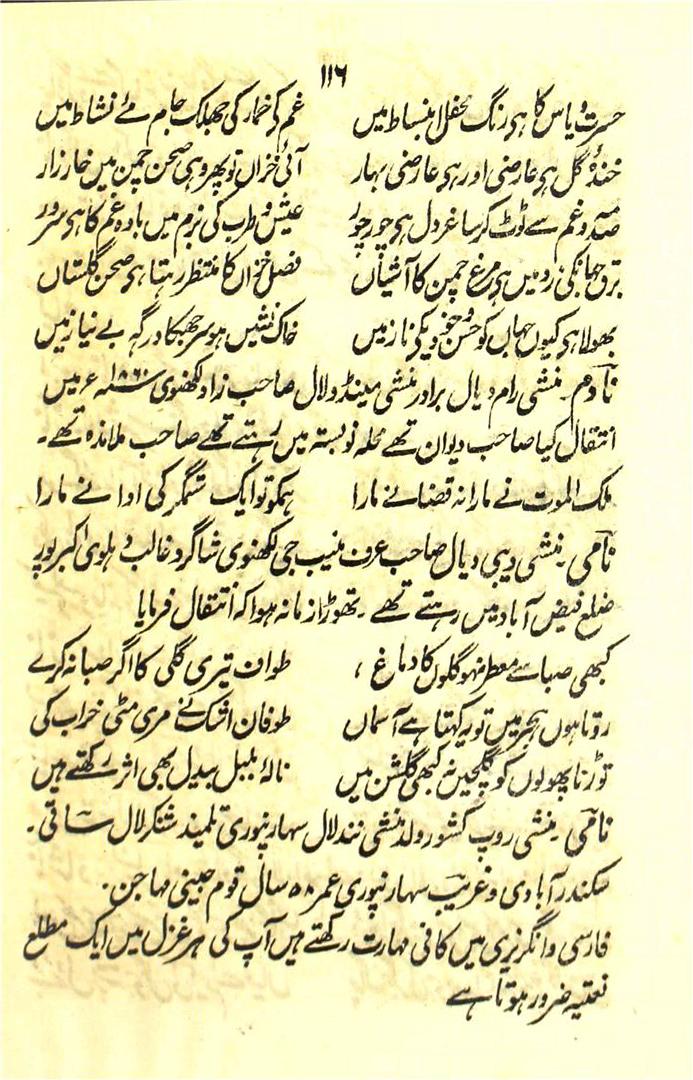 ۱۱۶
حسرت و یاس کا ہی رنگ محفل انبساط میں غم کے خمار کی جھلک جام مئے نشاط میں
خندۂ گل ہی عارضی اور ہی عارضی بہار آئی خزاں تو پھر وہی صحن چمن میں خار زار
صدمۂ غم سے ٹوٹ کر ساغر دل ہی چور چور عیش و طرب کی بزم میں بادہ غم کا ہی سرور
برق جہانکی زو میں ہی مرغ چمن کا آشیاں فصل خزاں کا منتظر رہتا ہی صحن گلستاں
بھولا ہی کیوں جہاں کو حسن و خودیکی ناز میں خاک نشیں ہو سر جھکا درگہ بے نیاز میں
نادم۔ منشی رام دیال برادر منشی مینڈو لال صاحب زار لکھنوی سنہ ۱۸۶۰ء میں
انتقال کیا صاحب دیوان تھے محلہ نوبستہ میں رہتے تھے صاحب تلامذہ تھے۔
ملک الموت نے مارا نہ قضا نے مارا ہمکو تو ایک ستمگر کی ادا نے مارا
نامی۔ منشی دیبی دیال صاحب عرف منیب جی لکھنوی شاگرد غالب دہلوی اکبرپور
ضلع فیض آباد میں رہتے تھے۔ تھوڑا زمانہ ہوا کہ انتقال فرمایا
کبھی صبا سے معطر نہو گلوں کا دماغ ، طواف تیری گلی کا اگر صبا نہ کرے
روتا ہوں ہجر میں تو یہ کہتا ہے آسماں طوفان اشک نے مری مٹی خراب کی
توڑنا پھولوں کو گلچین نہ کبھی گلشن میں نالۂ بلبل بیدل بھی اثر رکھتے ہیں
نامی۔ منشی روپ کشور ولد منشی نند لال سہارنپوری تلمیذ شنکر لال ساقی۔
سکندر آبادی و غریب سہارنپوری عمر ۵۸ سال قوم جینی مہاجن۔
فارسی و انگریزی میں کافی مہارت رکھتے ہیں آپ کی ہر غزل میں ایک مطلع
نعتیہ ضرور ہوتا ہے